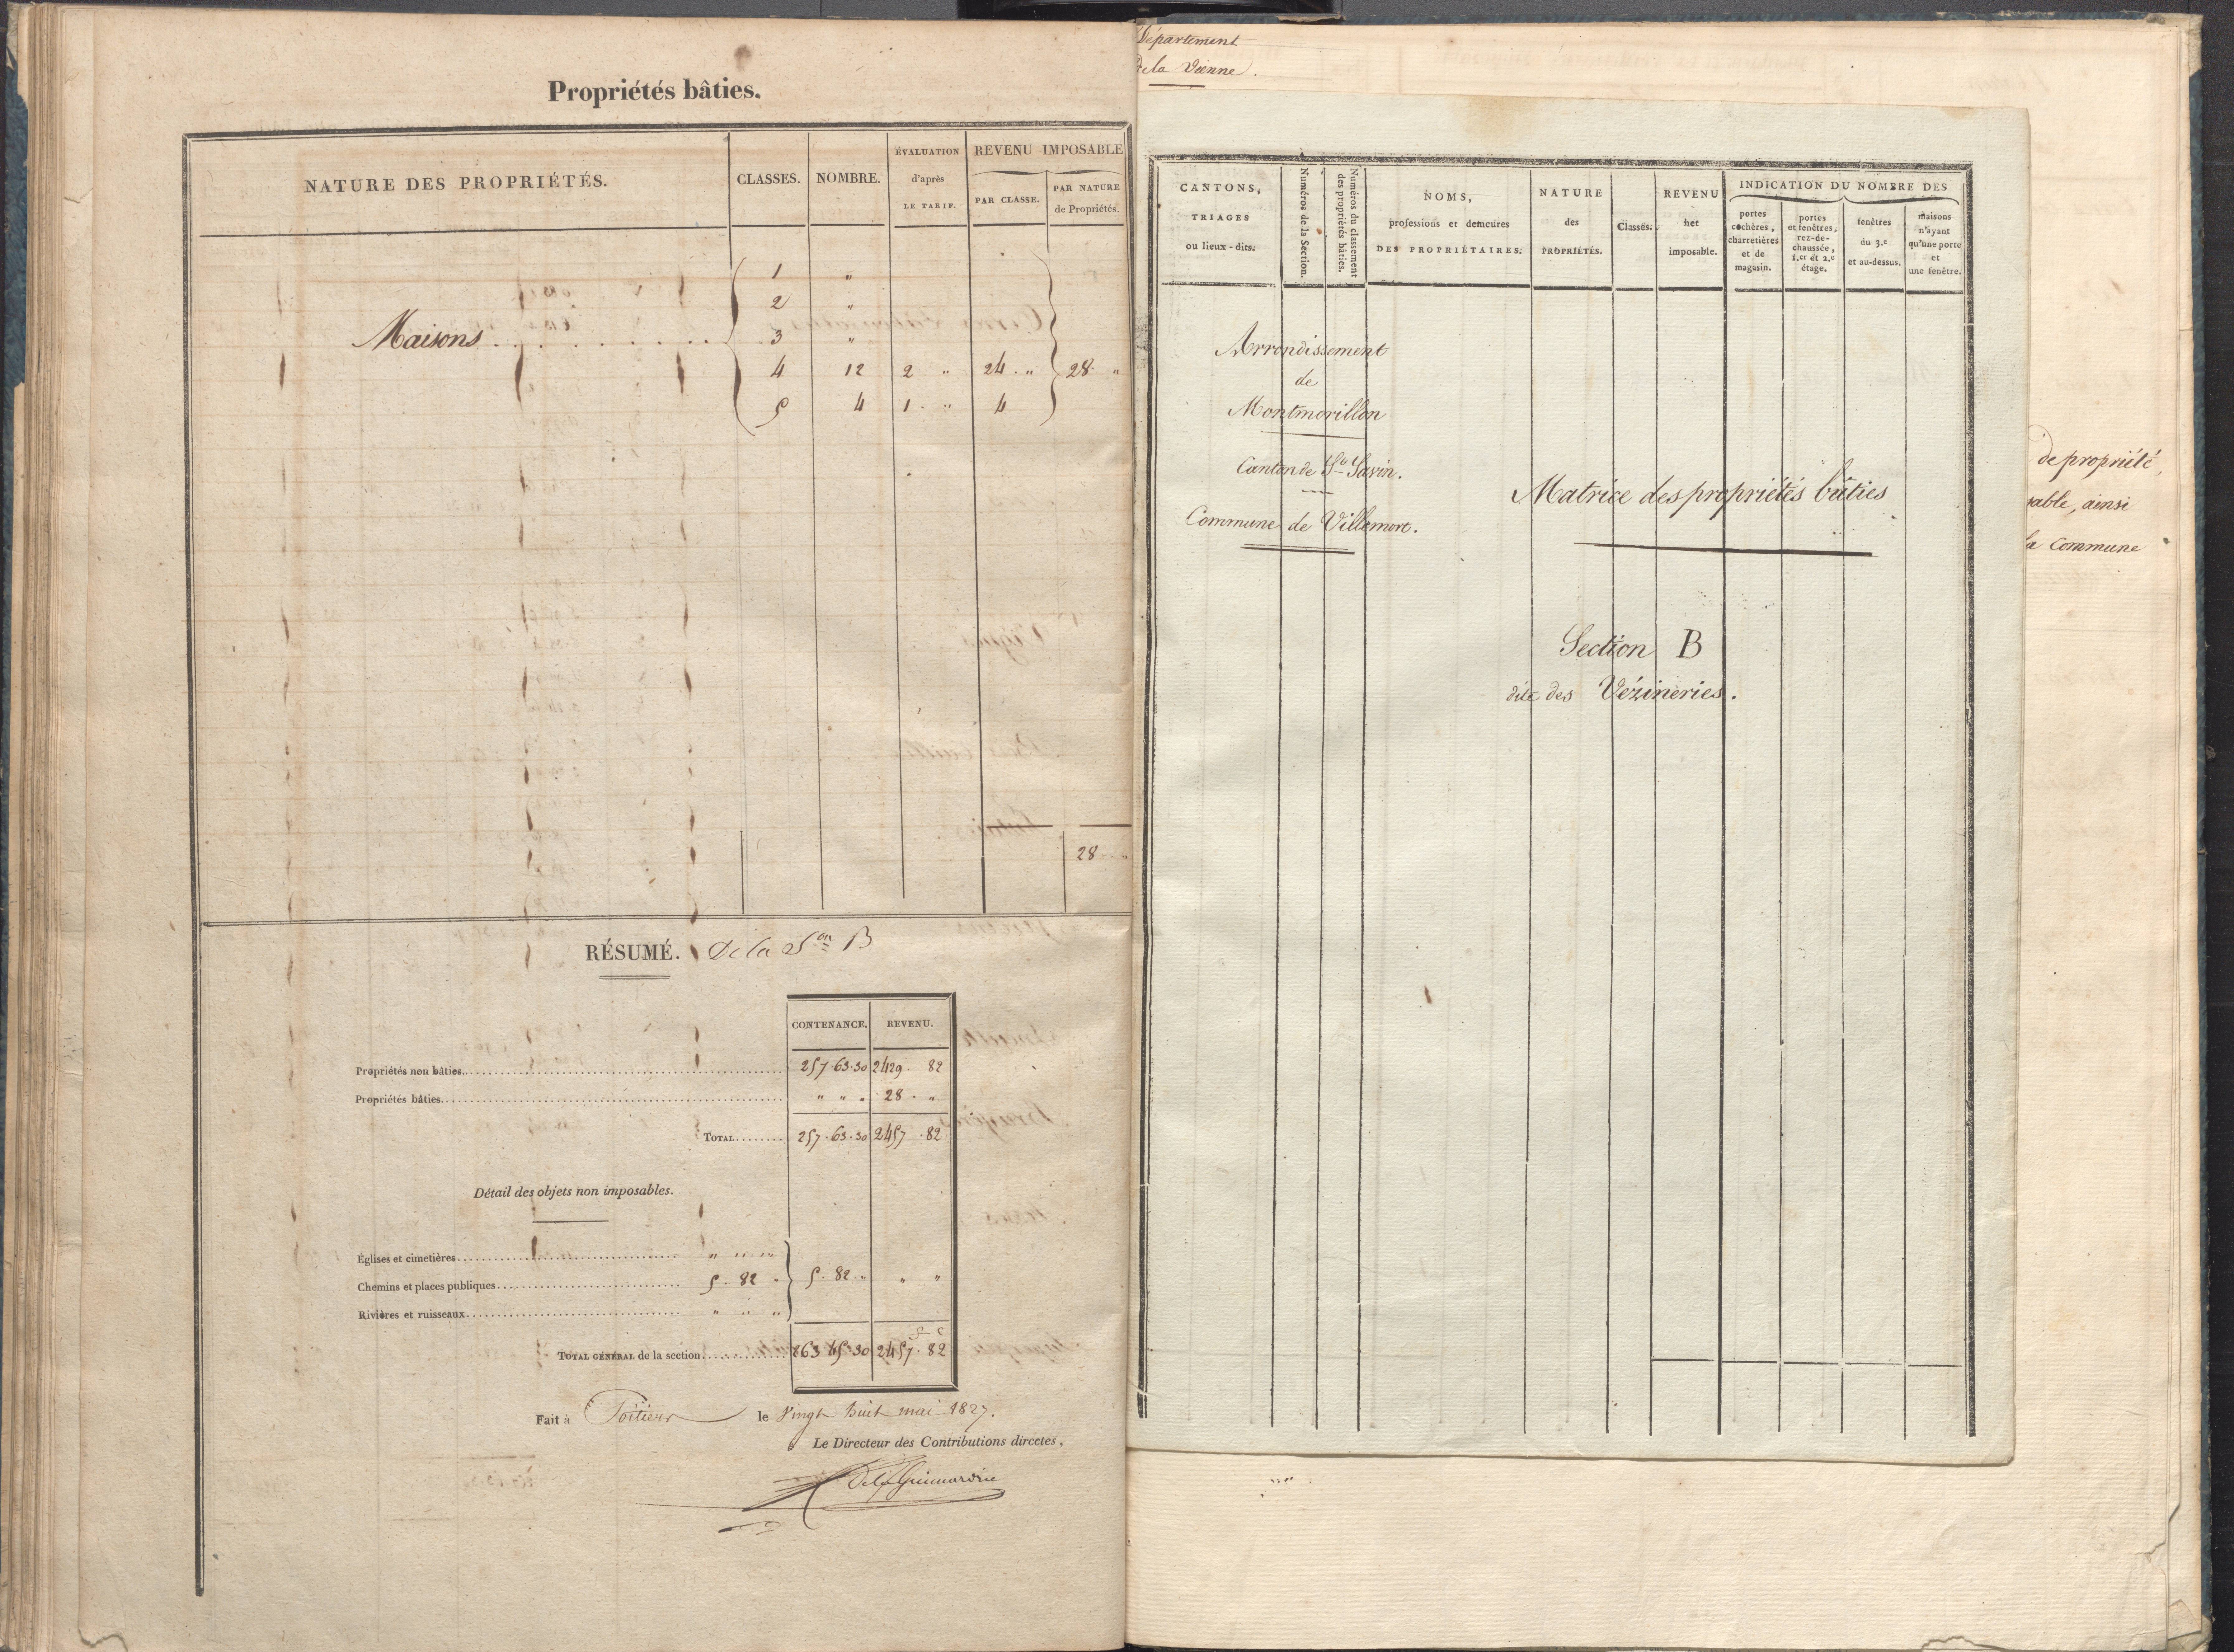 Propriétés bâties.
NATURE DES PROPRIÉTÉS. CLASSES. NOMBRE. ÉVALUATION d'après LE TARIF. REVENU IMPOSABLE PAR CLASSE. PAR NATURE de Propriétés.
1 "
2 "
Maisons . . . . . . . . . . . 3 "
4 12 2 " 24 . " 28 . "
5 4 1 . " 4
28 . . "
RÉSUMÉ. De la Son B
CONTENANCE. REVENU.
Propriétés non bâties. 257.63.30 2429 . 82
Propriétés bâties. " " " 28 . "
TOTAL. 257.63.30 2457 . 82
Détail des objets non imposables.
Églises et cimetières. " " "
Chemins et places publiques. 5 . 82 " 5 . 82 . " " "
Rivières et ruisseaux. " " "
TOTAL GÉNÉRAL de la section. 263 45.30 2457 . 82
Fait à Poitiers le Vingt huit mai 1827.
Le Directeur des Contributions directes,
Département
de la Vienne.
CANTONS, TRIAGES ou lieux-dits.
Numéros de la Section.
Numéros du classement des propriétés bâties.
NOMS, professions et demeures DES PROPRIÉTAIRES.
NATURE des PROPRIÉTÉS.
Classes.
REVENU net imposable.
INDICATION DU NOMBRE DES
portes cochères, charretières et de magasin.
portes et fenêtres, rez-de-chaussée, 1.er et 2.e étage.
fenêtres du 3.e et au-dessus.
maisons n'ayant qu'une porte et une fenêtre.
Arrondissement
de
Montmorillon
Canton de St Savin.
Commune de Villemort.
Matrice des propriétés bâties
Section B
dite des Vézineries.
de propriété,
sable, ainsi
la Commune